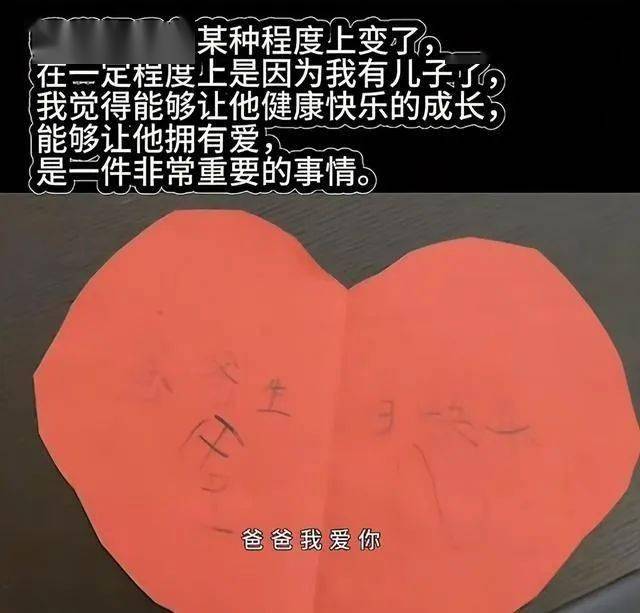 某种程度上变了，
在一定程度上是因为我有儿子了，
我觉得能够让他健康快乐的成长，
能够让他拥有爱，
是一件非常重要的事情。
生 日
爸爸我爱你